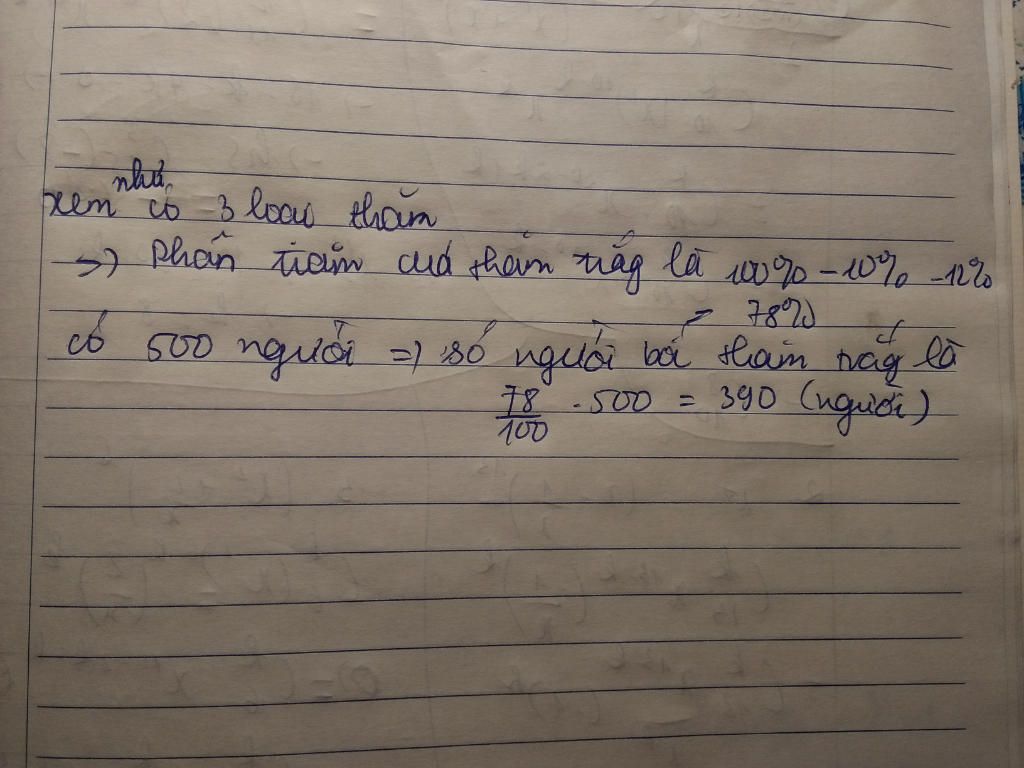 xem như có 3 loại thăm
=> Phần trăm của thăm trắg là 100% - 10% - 12%
= 78%
có 500 người => số người bỏ thăm trắg là
78/100 . 500 = 390 (người)